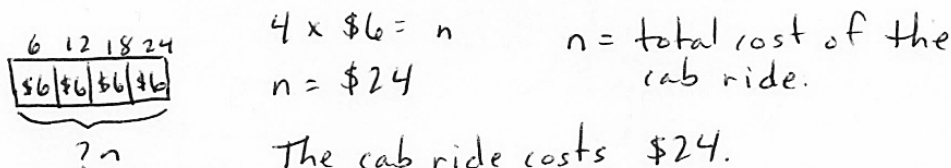 6 12 18 24
$6 $6 $6 $6
? n
4 x $6 = n
n = $24
n = total cost of the
cab ride.
The cab ride costs $24.